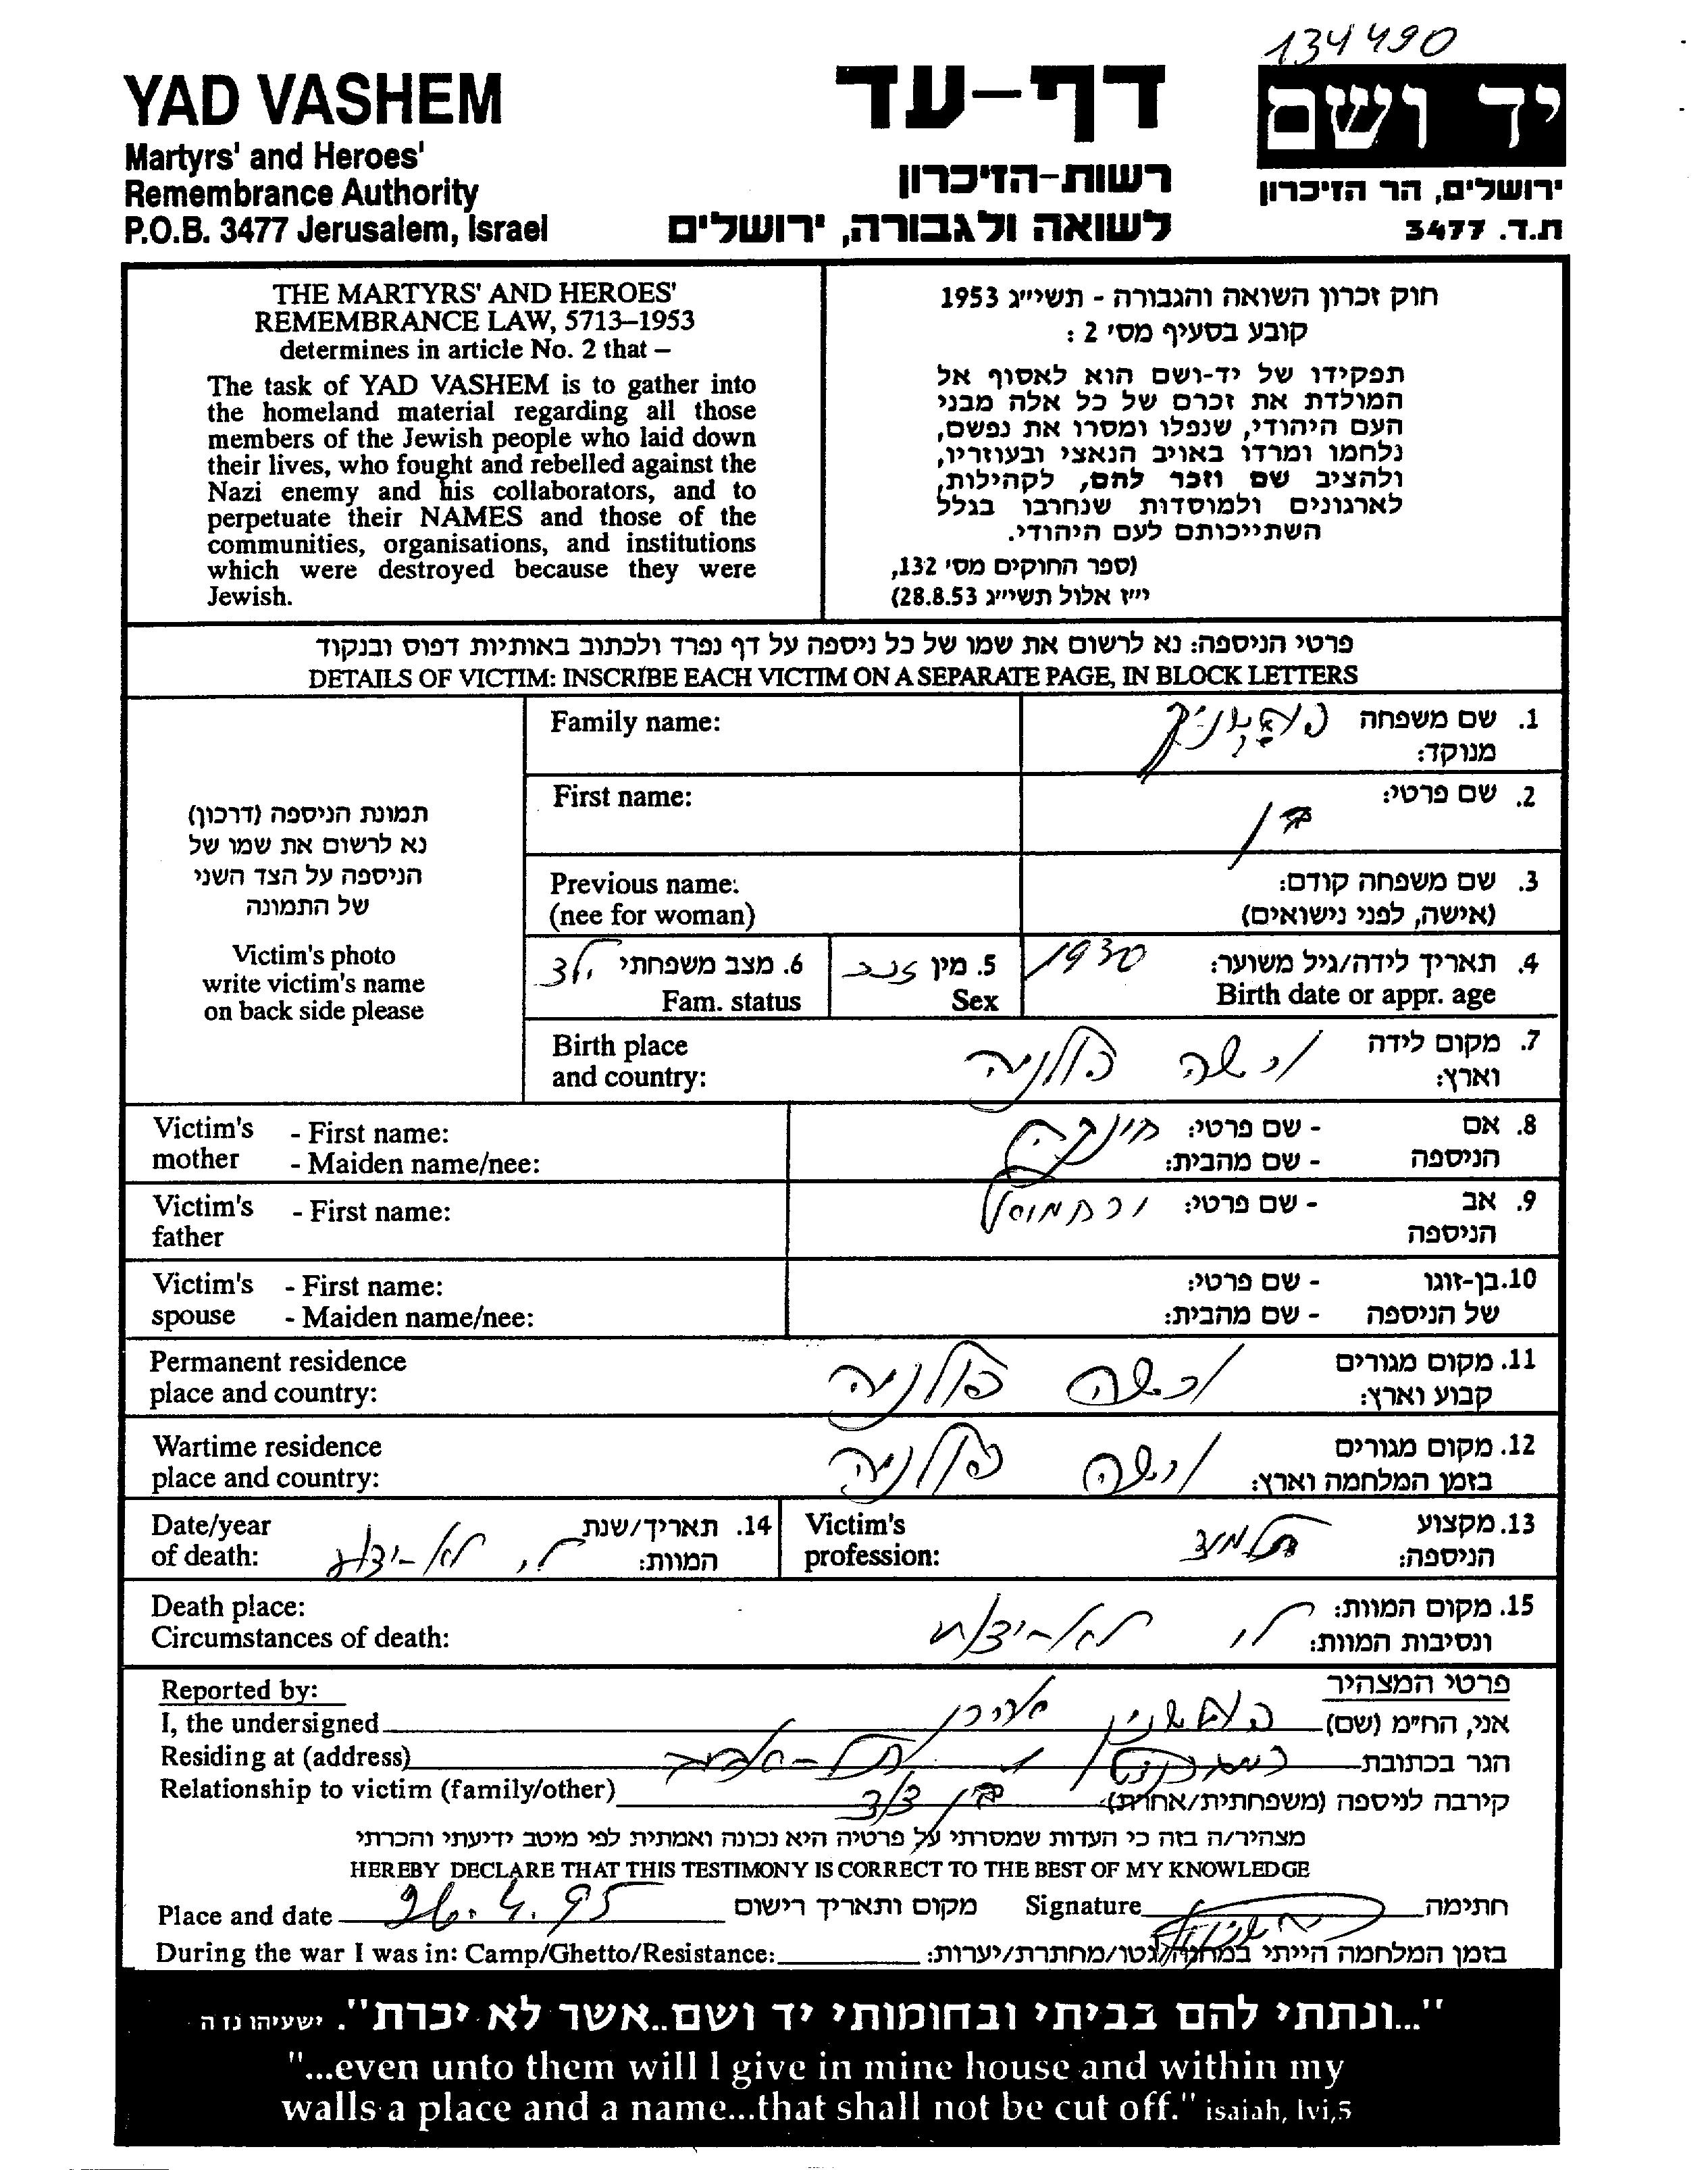 134490
YAD VASHEM
Martyrs' and Heroes'
Remembrance Authority
P.O.B. 3477 Jerusalem, Israel
דף-עד
רשות-הזיכרון
לשואה ולגבורה, ירושלים
יד ושם
ירושלים, הר הזיכרון
ת.ד. 3477
THE MARTYRS' AND HEROES'
REMEMBRANCE LAW, 5713–1953
determines in article No. 2 that –
The task of YAD VASHEM is to gather into
the homeland material regarding all those
members of the Jewish people who laid down
their lives, who fought and rebelled against the
Nazi enemy and his collaborators, and to
perpetuate their NAMES and those of the
communities, organisations, and institutions
which were destroyed because they were
Jewish.
חוק זכרון השואה והגבורה - תשי״ג 1953
קובע בסעיף מס׳ 2 :
תפקידו של יד-ושם הוא לאסוף אל
המולדת את זכרם של כל אלה מבני
העם היהודי, שנפלו ומסרו את נפשם,
נלחמו ומרדו באויב הנאצי ובעוזריו,
ולהציב שם וזכר להם, לקהילות,
לארגונים ולמוסדות שנחרבו בגלל
השתייכותם לעם היהודי.
(ספר החוקים מס׳ 132,
י״ז אלול תשי״ג 28.8.53)
פרטי הניספה: נא לרשום את שמו של כל ניספה על דף נפרד ולכתוב באותיות דפוס ובנקוד
DETAILS OF VICTIM: INSCRIBE EACH VICTIM ON A SEPARATE PAGE, IN BLOCK LETTERS
תמונת הניספה (דרכון)
נא לרשום את שמו של
הניספה על הצד השני
של התמונה
Victim's photo
write victim's name
on back side please
Family name:
1. שם משפחה
מנוקד:
First name:
2. שם פרטי:
Previous name:
(nee for woman)
3. שם משפחה קודם:
(אישה, לפני נישואים)
4. תאריך לידה/גיל משוער: 1930
Birth date or appr. age
5. מין זכר
Sex
6. מצב משפחתי ילד
Fam. status
Birth place
and country:
7. מקום לידה
וארץ: פולניה
Victim's mother
- First name:
- Maiden name/nee:
8. אם הניספה
- שם פרטי:
- שם מהבית:
Victim's father
- First name:
9. אב הניספה
- שם פרטי:
Victim's spouse
- First name:
- Maiden name/nee:
10. בן-זוגו של הניספה
- שם פרטי:
- שם מהבית:
Permanent residence
place and country:
11. מקום מגורים
קבוע וארץ: פולניה
Wartime residence
place and country:
12. מקום מגורים
בזמן המלחמה וארץ: פולניה
Victim's
profession:
13. מקצוע
הניספה: תלמיד
Date/year
of death:
14. תאריך/שנת
המוות: לי לא-ידוע
Death place:
Circumstances of death:
15. מקום המוות:
ונסיבות המוות: לי לא-ידוע
Reported by:
פרטי המצהיר
I, the undersigned
אני, הח״מ (שם)
Residing at (address)
הגר בכתובת תל-אביב
Relationship to victim (family/other)
קירבה לניספה (משפחתית/אחרת) בן דוד
מצהיר/ה בזה כי העדות שמסרתי על פרטיה היא נכונה ואמתית לפי מיטב ידיעתי והכרתי
HEREBY DECLARE THAT THIS TESTIMONY IS CORRECT TO THE BEST OF MY KNOWLEDGE
Place and date 26.4.95 מקום ותאריך רישום
Signature חתימה
During the war I was in: Camp/Ghetto/Resistance:
בזמן המלחמה הייתי במחנה/גטו/מחתרת/יערות:
"...ונתתי להם בביתי ובחומותי יד ושם..אשר לא יכרת". ישעיהו נו ה
"...even unto them will I give in mine house and within my
walls a place and a name...that shall not be cut off." isaiah, lvi,5